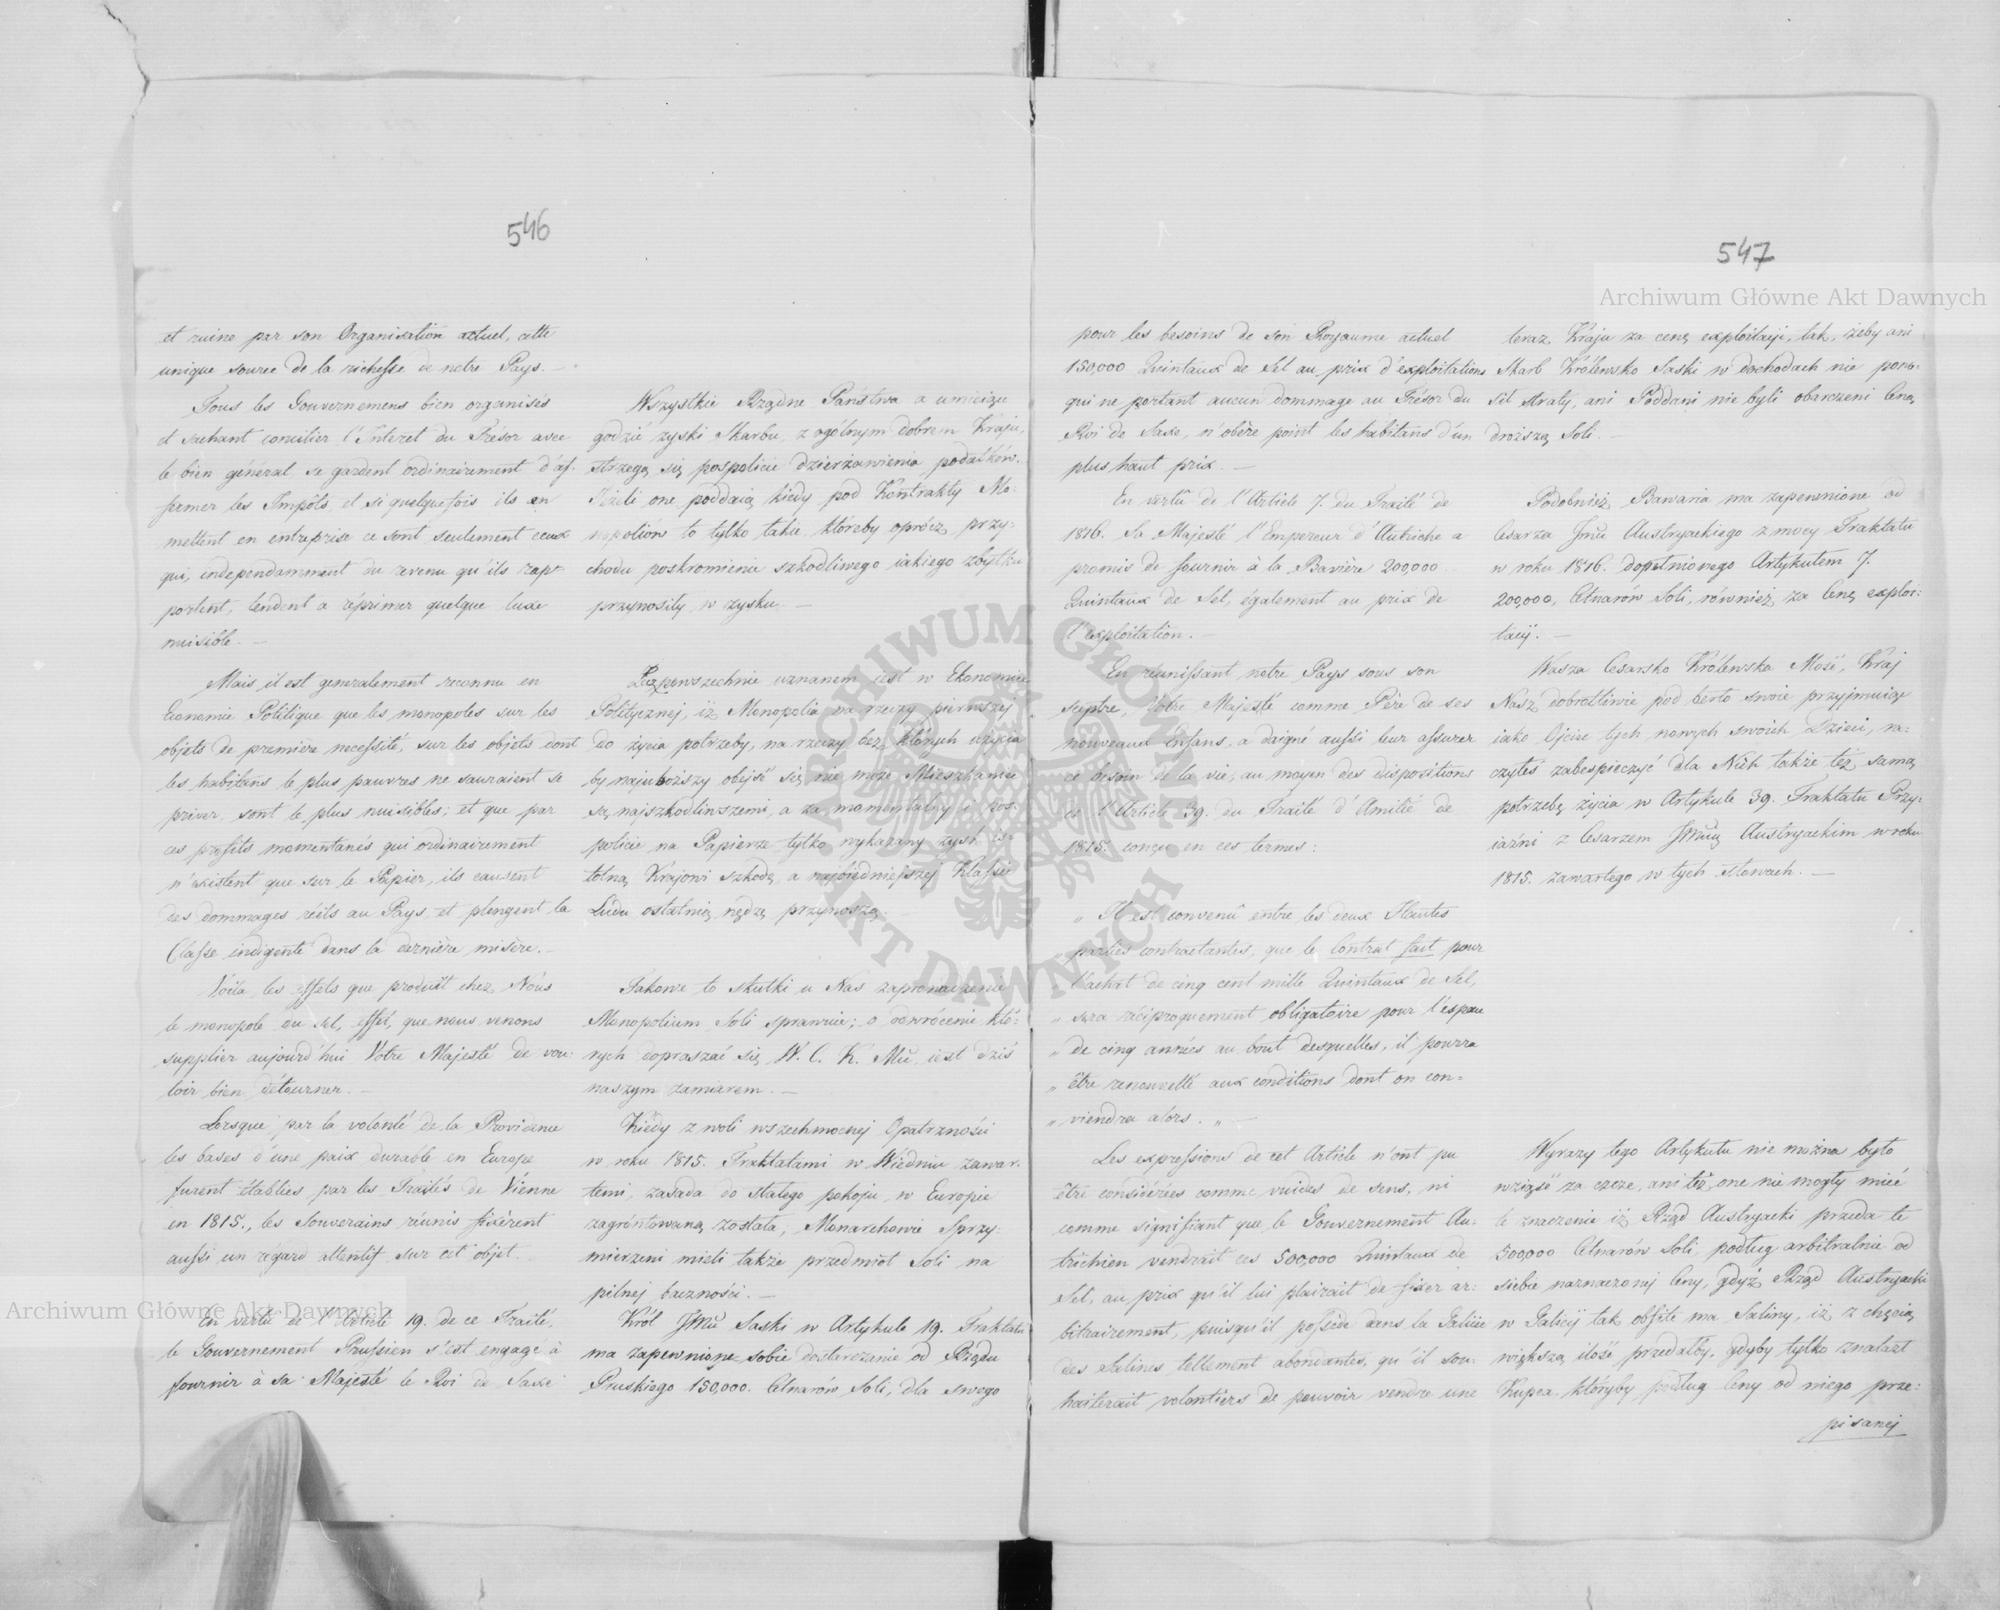 546
et ruine par son Organisation actuel, cette
unique source de la richesse de notre Pays. —
Tous les Gouvernemens bien organisés
et sachant concilier l'Interet du Trésor avec
le bien général se gardent ordinairement d'af-
fermer les Impôts, et si quelquefois ils en
mettent en entreprise ce sont seulement ceux
qui, independamment du revenu qu'ils rap-
portent, tendent a réprimer quelque luxe
nuisible. —
Mais il est generalement reconnu en
Economie Politique que les monopoles sur les
objets de première necessité, sur les objets dont
les habitans le plus pauvres ne sauraient se
priver, sont le plus nuisibles; et que par
ces profits momentanés qui ordinairement
n'existent que sur le Papier, ils causent
des dommages réels au Pays et plengent la
Classe indigente dans la dernière misère. —
Voila les effets que produit chez Nous
le monopole du sel, effet, que nous venons
supplier aujourd'hui Votre Majesté de vou-
loir bien détourner. —
Lorsque par la volonté de la Providence
les bases d'une paix durable en Europe
furent établies par les Traités de Vienne
en 1815., les Souverains réunis fixèrent
aussi un régard attentif sur cet objet.
En vertu de l'Article 19. de ce Traité,
le Gouvernement Prussien s'est engagé à
fournir à sa Majesté le Roi de Saxe
Wszystkie Rządne Państwa a umieiące
godzić zyski Skarbu, z ogólnym dobrem Kraju,
strzegą się pospolicie dzierżawienia podatków.
Jeżeli one poddaią kiedy pod Kontrakty Mo-
nopoliów to tylko takie, któreby oprócz przy-
chodu poskromienie szkodliwego iakiego zbytku
przynosiły w zysku. —
powszechnie uznanem iest w Ekonomii
Politycznej, iż Monopolia na rzeczy pierwszej
do życia potrzeby, na rzeczy bez których użycia
by najuboższy obejść się nie może Mieszkaniec
są najszkodliwszemi, a za momentalny i pos-
policie na Papierze tylko wykazany zysk is-
totną Krajowi szkodę, a najbiedniejszej Klassie
Ludu ostatnią nędzę przynoszą.
Takowe to skutki u Nas zaprowadzenie
Monopolium Soli sprawuie; o odwrócenie któ-
rych dopraszać się W. C. K. Mci iest dziś
naszym zamiarem. —
Kiedy z woli wszechmocnej Opatrzności
w roku 1815. Traktatami w Wiedniu zawar-
temi, zasada do stałego pokoju w Europie
zagróntowaną została, Monarchowie Sprzy-
mierzeni mieli także przedmiot Soli na
pilnej baczności. —
Król JMć Saski w Artykule 19. Traktatu
ma zapewnione sobie dostarczanie od Rządu
Pruskiego 150,000. Cetnarów Soli, dla swego
547
pour les besoins de son Royaume actuel
150,000 Quintaux de Sel au prix d'exploitations
qui ne portant aucun dommage au Trésor du
Roi de Saxe, n'obère point les habitans d'un
plus haut prix. —
En vertû de l'Article 7. du Traité de
1816. Sa Majesté l'Empereur d'Autriche a
promis de fournir à la Bavière 200,000
Quintaux de Sel, également au prix de
l'exploitation. —
En réunissant notre Pays sous son
sceptre, Votre Majesté comme Père de ses
nouveaux Enfans, a daigné aussi leur assurer
ce besoin de la vie, au moyen des dispositions
de l'Article 39. du Traité d'Amitié de
1815. conçu en ces termes:
„ Il est convenû entre les deux Hautes
parties contractantes, que le Contrat fait pour
l'achat de cinq cent mille Quintaux de Sel,
„ sera réciproquement obligatoire pour l'espace
„ de cinq années au bout desquelles, il pourra
„ être renouvellé aux conditions dont on con-
„ viendra alors. „ —
Les expressions de cet Article n'ont pu
être considérées comme vuides de sens, ni
comme signifiant que le Gouvernement Au-
trichien vendrait ces 500,000 Quintaux de
Sel, au prix qu'il lui plairait de fixer ar-
bitrairement, puisqu'il possède dans la Galicie
des Salines tellement abondantes, qu'il sou-
haiterait volontiers de pouvoir vendre une
teraz. Kraju za cenę exploitacji, tak, żeby ani
Skarb Królewsko Saski w dochodach nie pono-
sił straty, ani Poddani nie byli obarczeni Ceną
droższą Soli. —
Podobnież Bawaria ma zapewnione od
Cesarza JMci Austryackiego z mocy Traktatu
w roku 1816. dopełnionego Artykułem 7.
200,000, Cetnarów Soli, również za Cenę exploi-
tacij. —
Wasza Cesarsko Królewska Mość, Kraj
Nasz dobrotliwie pod berło swoie przyjmuiąc
iako Ojciec tych nowych swoich Dzieci, ra-
czyłeś zabespieczyć dla Nich także tęż samą
potrzebę życia w Artykule 39. Traktatu Przy-
iaźni z Cesarzem JMcią Austryackim w roku
1815. zawartego w tych słowach. —
Wyrazy tego Artykułu nie można było
wziąść za czcze, ani też one nie mogły mieć
te znaczenie iż Rząd Austryacki przeda te
500,000 Cetnarów Soli, podług arbitralnie od
siebie naznaczonej Ceny, gdyż Rząd Austryacki
w Galicij tak obfite ma Saliny, iż z chęcią
większą ilość przedałby, gdyby tylko znalazł
Kupca, któryby podług Ceny od niego prze-
pisanej
Archiwum Główne Akt Dawnych
Archiwum Główne Akt Dawnych
ARCHIWUM GŁÓWNE AKT DAWNYCH